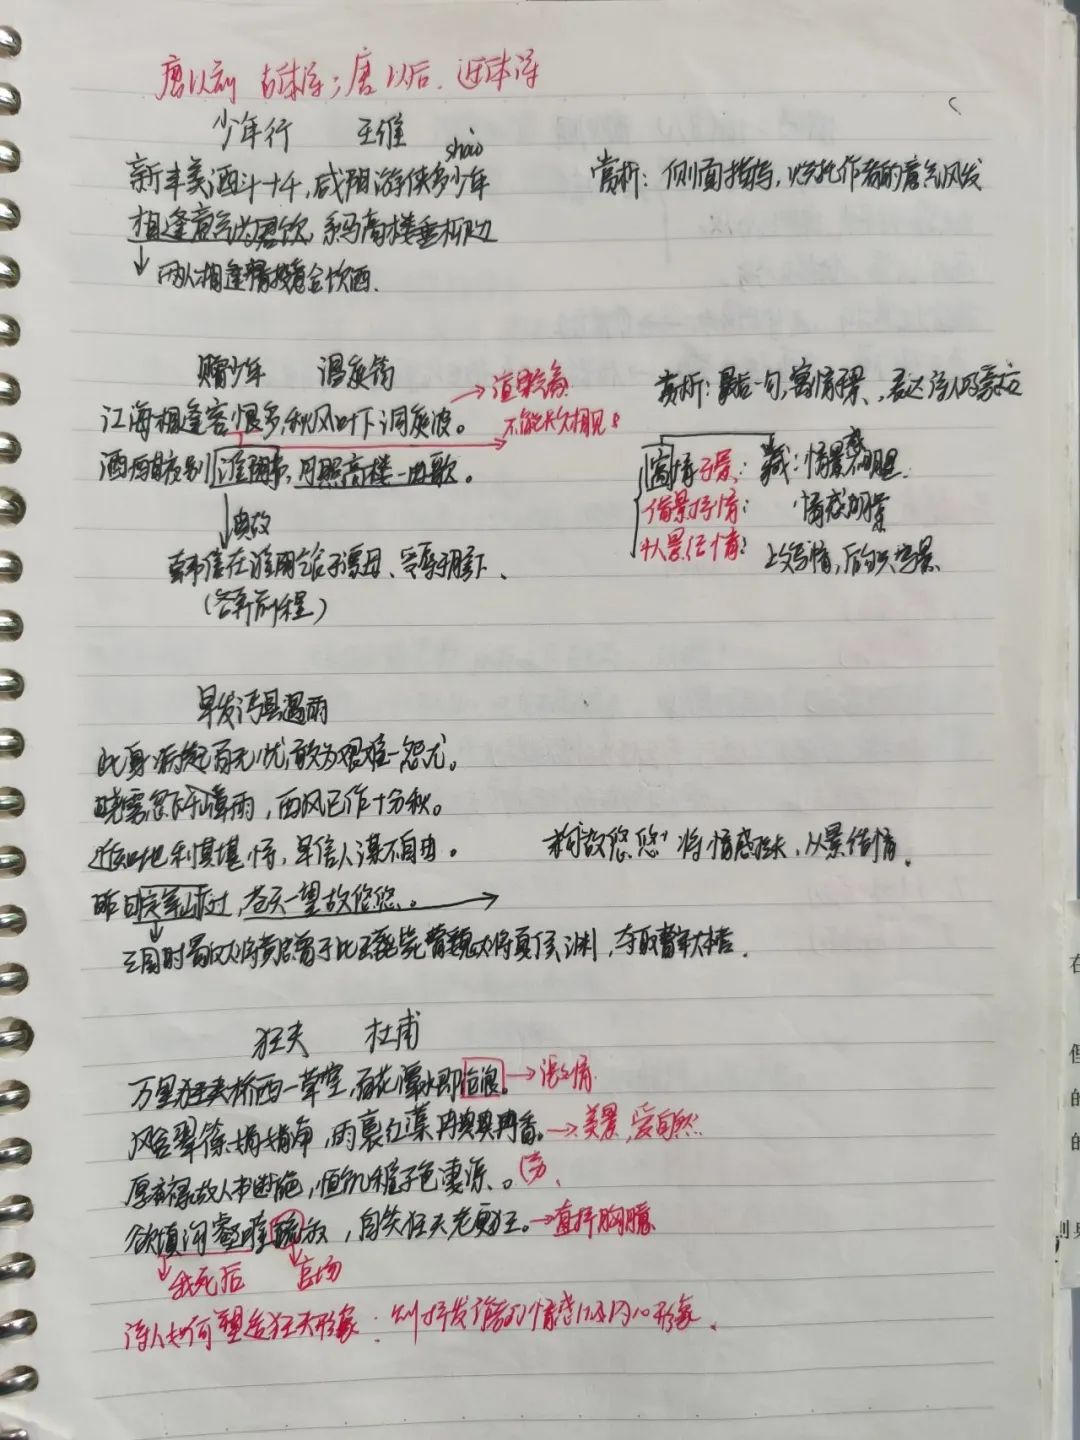 唐以前 古体诗；唐以后、近体诗
少年行 王维
shào
新丰美酒斗十千，咸阳游侠多少年
赏析：侧面描写，烘托作者的意气风发
相逢意气为君饮，系马高楼垂柳边
两人相逢情投意合饮酒.
赠少年 温庭筠
江海相逢客恨多，秋风叶下洞庭波。
不能长久相见
赏析：最后一句，寓情于景，表达诗人的豪放
酒酣夜别淮阴市，月照高楼一曲歌。
寓情于景：藏：情景不明显
借景抒情： 情感明显
典故
以景结情： 上文写情，后句只写景
韩信在淮阴乞食于漂母、受辱于胯下、
（各奔前程）
早发沔县遇雨
此身病起百无忧，敢为艰难一怨尤。
晓雾忽下千嶂雨，西风已作十分秋。
近知地利真堪恃，早信人谋不自由。
“故悠悠”将情感拉长，以景结情.
昨日定军山下过，苍天一望故悠悠。
三国时蜀汉大将黄忠曾于此 曹魏大将夏侯渊，夺取曹军大本营.
狂夫 杜甫
万里桥西一草堂，百花潭水即沧浪。
风含翠篠娟娟净，雨裛红蕖冉冉香。→美景，爱自然
厚禄故人书断绝，恒饥稚子色凄凉。
欲填沟壑唯疏放，自笑狂夫老更狂。→直抒胸臆
我死后 官场
诗人如何塑造狂夫形象：